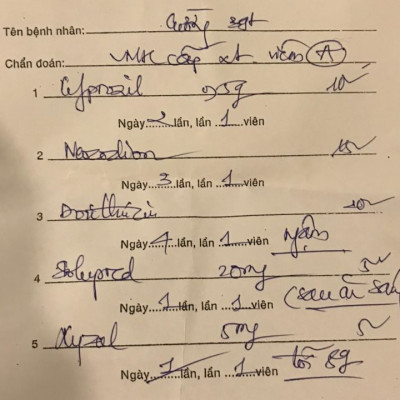 Tên bệnh nhân: Cường 39t
Chẩn đoán: VMH cấp xt. viêm (A)
1 Cefprozil 0,5g 10v
Ngày 2 lần, lần 1 viên
2 15v
Ngày 3 lần, lần 1 viên
3 20v
Ngày 4 lần, lần 1 viên ngậm
4 Solupred 20mg 5v
Ngày 1 lần, lần 1 viên (sau ăn sáng
5 Xyzal 5mg 5v
Ngày 1 lần, lần 1 viên tối 8g